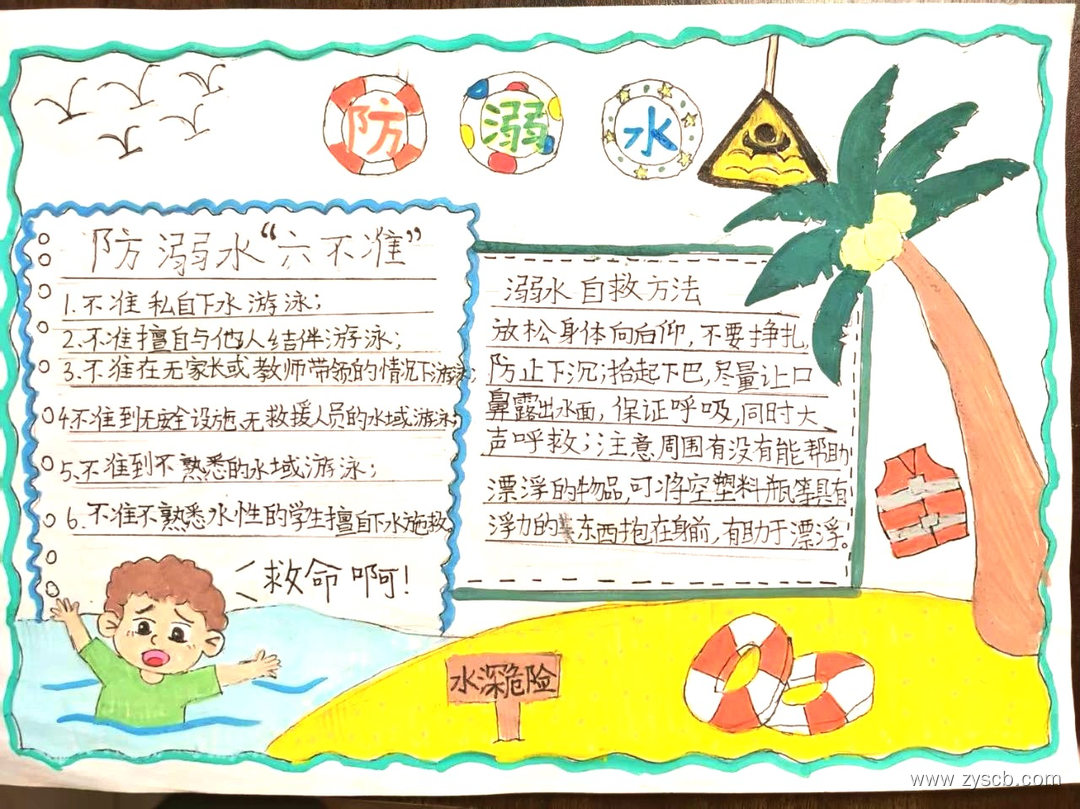 防溺水
防溺水“六不准”
1.不准私自下水游泳;
2.不准擅自与他人结伴游泳;
3.不准在无家长或教师带领的情况下游泳;
4.不准到无安全设施、无救援人员的水域游泳;
5.不准到不熟悉的水域游泳;
6.不准不熟悉水性的学生擅自下水施救。
救命啊!
溺水自救方法
放松身体向后仰,不要挣扎,
防止下沉;抬起下巴,尽量让口
鼻露出水面,保证呼吸,同时大
声呼救;注意周围有没有能帮助
漂浮的物品,可将空塑料瓶等具有
浮力的东西抱在身前,有助于漂浮。
水深危险
www.zyscb.com